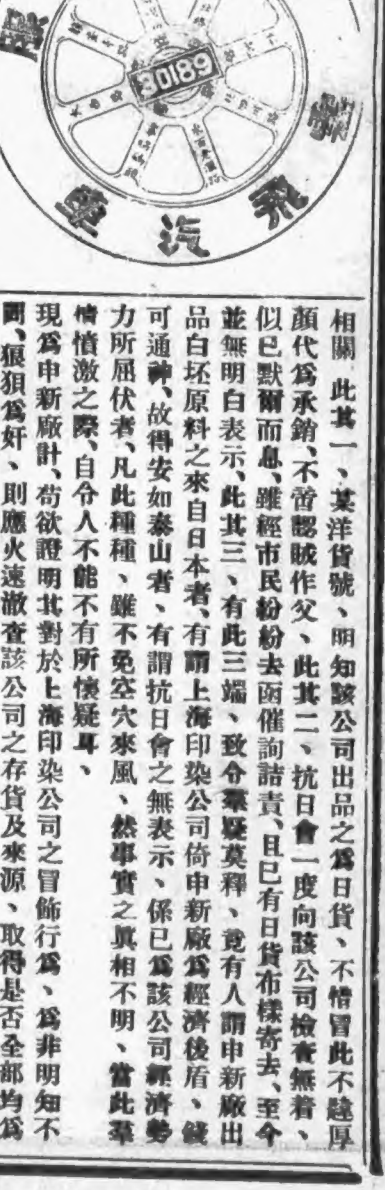 30189
飛
汽
車
相關此其一、某洋貨號、明知該公司出品之爲日貨、不惜冒此不韙厚
顏代爲承銷、不啻認賊作父、此其二、抗日會一度向該公司檢查無着、
似已默爾而息、雖經市民紛紛去函催詢詰責、且已有日貨布樣寄去、至今
並無明白表示、此其三、有此三端、致令羣疑莫釋、竟有人謂申新廠出
品白坯原料之來自日本者、有謂上海印染公司倚申新廠爲經濟後盾、錢
可通神、故得安如泰山者、有謂抗日會之無表示、係已爲該公司經濟勢
力所屈伏者、凡此種種、雖不免空穴來風、然事實之眞相不明、當此羣
情憤激之際、自令人不能不有所懷疑耳、
現爲申新廠計、苟欲證明其對於上海印染公司之冒飾行爲、爲非明知不
、狼狽爲奸、則應火速澈查該公司之存貨及來源、取得是否全部均爲